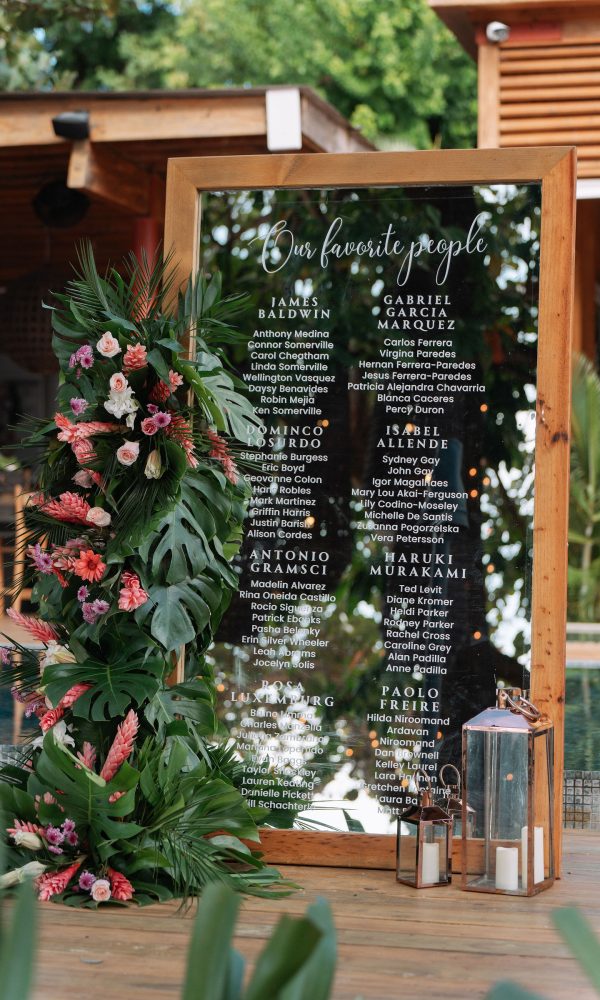 Our favorite people
JAMES
BALDWIN
Anthony Medina
Connor Somerville
Carol Cheatham
Linda Somerville
Wellington Vasquez
Daysy Benavides
Robin Mejia
Ken Somerville
DOMINCO
LOSURDO
Stephanie Burgess
Eric Boyd
Geovanne Colon
Harry Robles
Mark Martinez
Griffin Harris
Justin Barish
Alison Cordes
ANTONIO
GRAMSCI
Madelin Alvarez
Rina Oneida Castillo
Rocio Siguenza
Patrick Ebooks
Pasha Belenky
Erin Silver Wheeler
Leah Abrams
Jocelyn Solis
ROSA
LUXEMBURG
Charles
Taylor
Lauren Keating
Danielle Pickett
Will Schachterle
GABRIEL
GARCIA
MARQUEZ
Carlos Ferrera
Virgina Paredes
Hernan Ferrera-Paredes
Jesus Ferrera-Paredes
Patricia Alejandra Chavarria
Blanca Caceres
Percy Duron
ISABEL
ALLENDE
Sydney Gay
John Gay
Igor Magalhaes
Mary Lou Akai-Ferguson
Lily Codino-Moseley
Michelle De Santis
Zusanna Pogorzelska
Vera Petersson
HARUKI
MURAKAMI
Ted Levit
Diane Kromer
Heidi Parker
Rodney Parker
Rachel Cross
Caroline Grey
Alan Padilla
Anne Padilla
PAOLO
FREIRE
Hilda Niroomand
Ardavan
Niroomand
Dan Brownell
Kelley Laurel
Lara
Gretchen
Laura
Matt